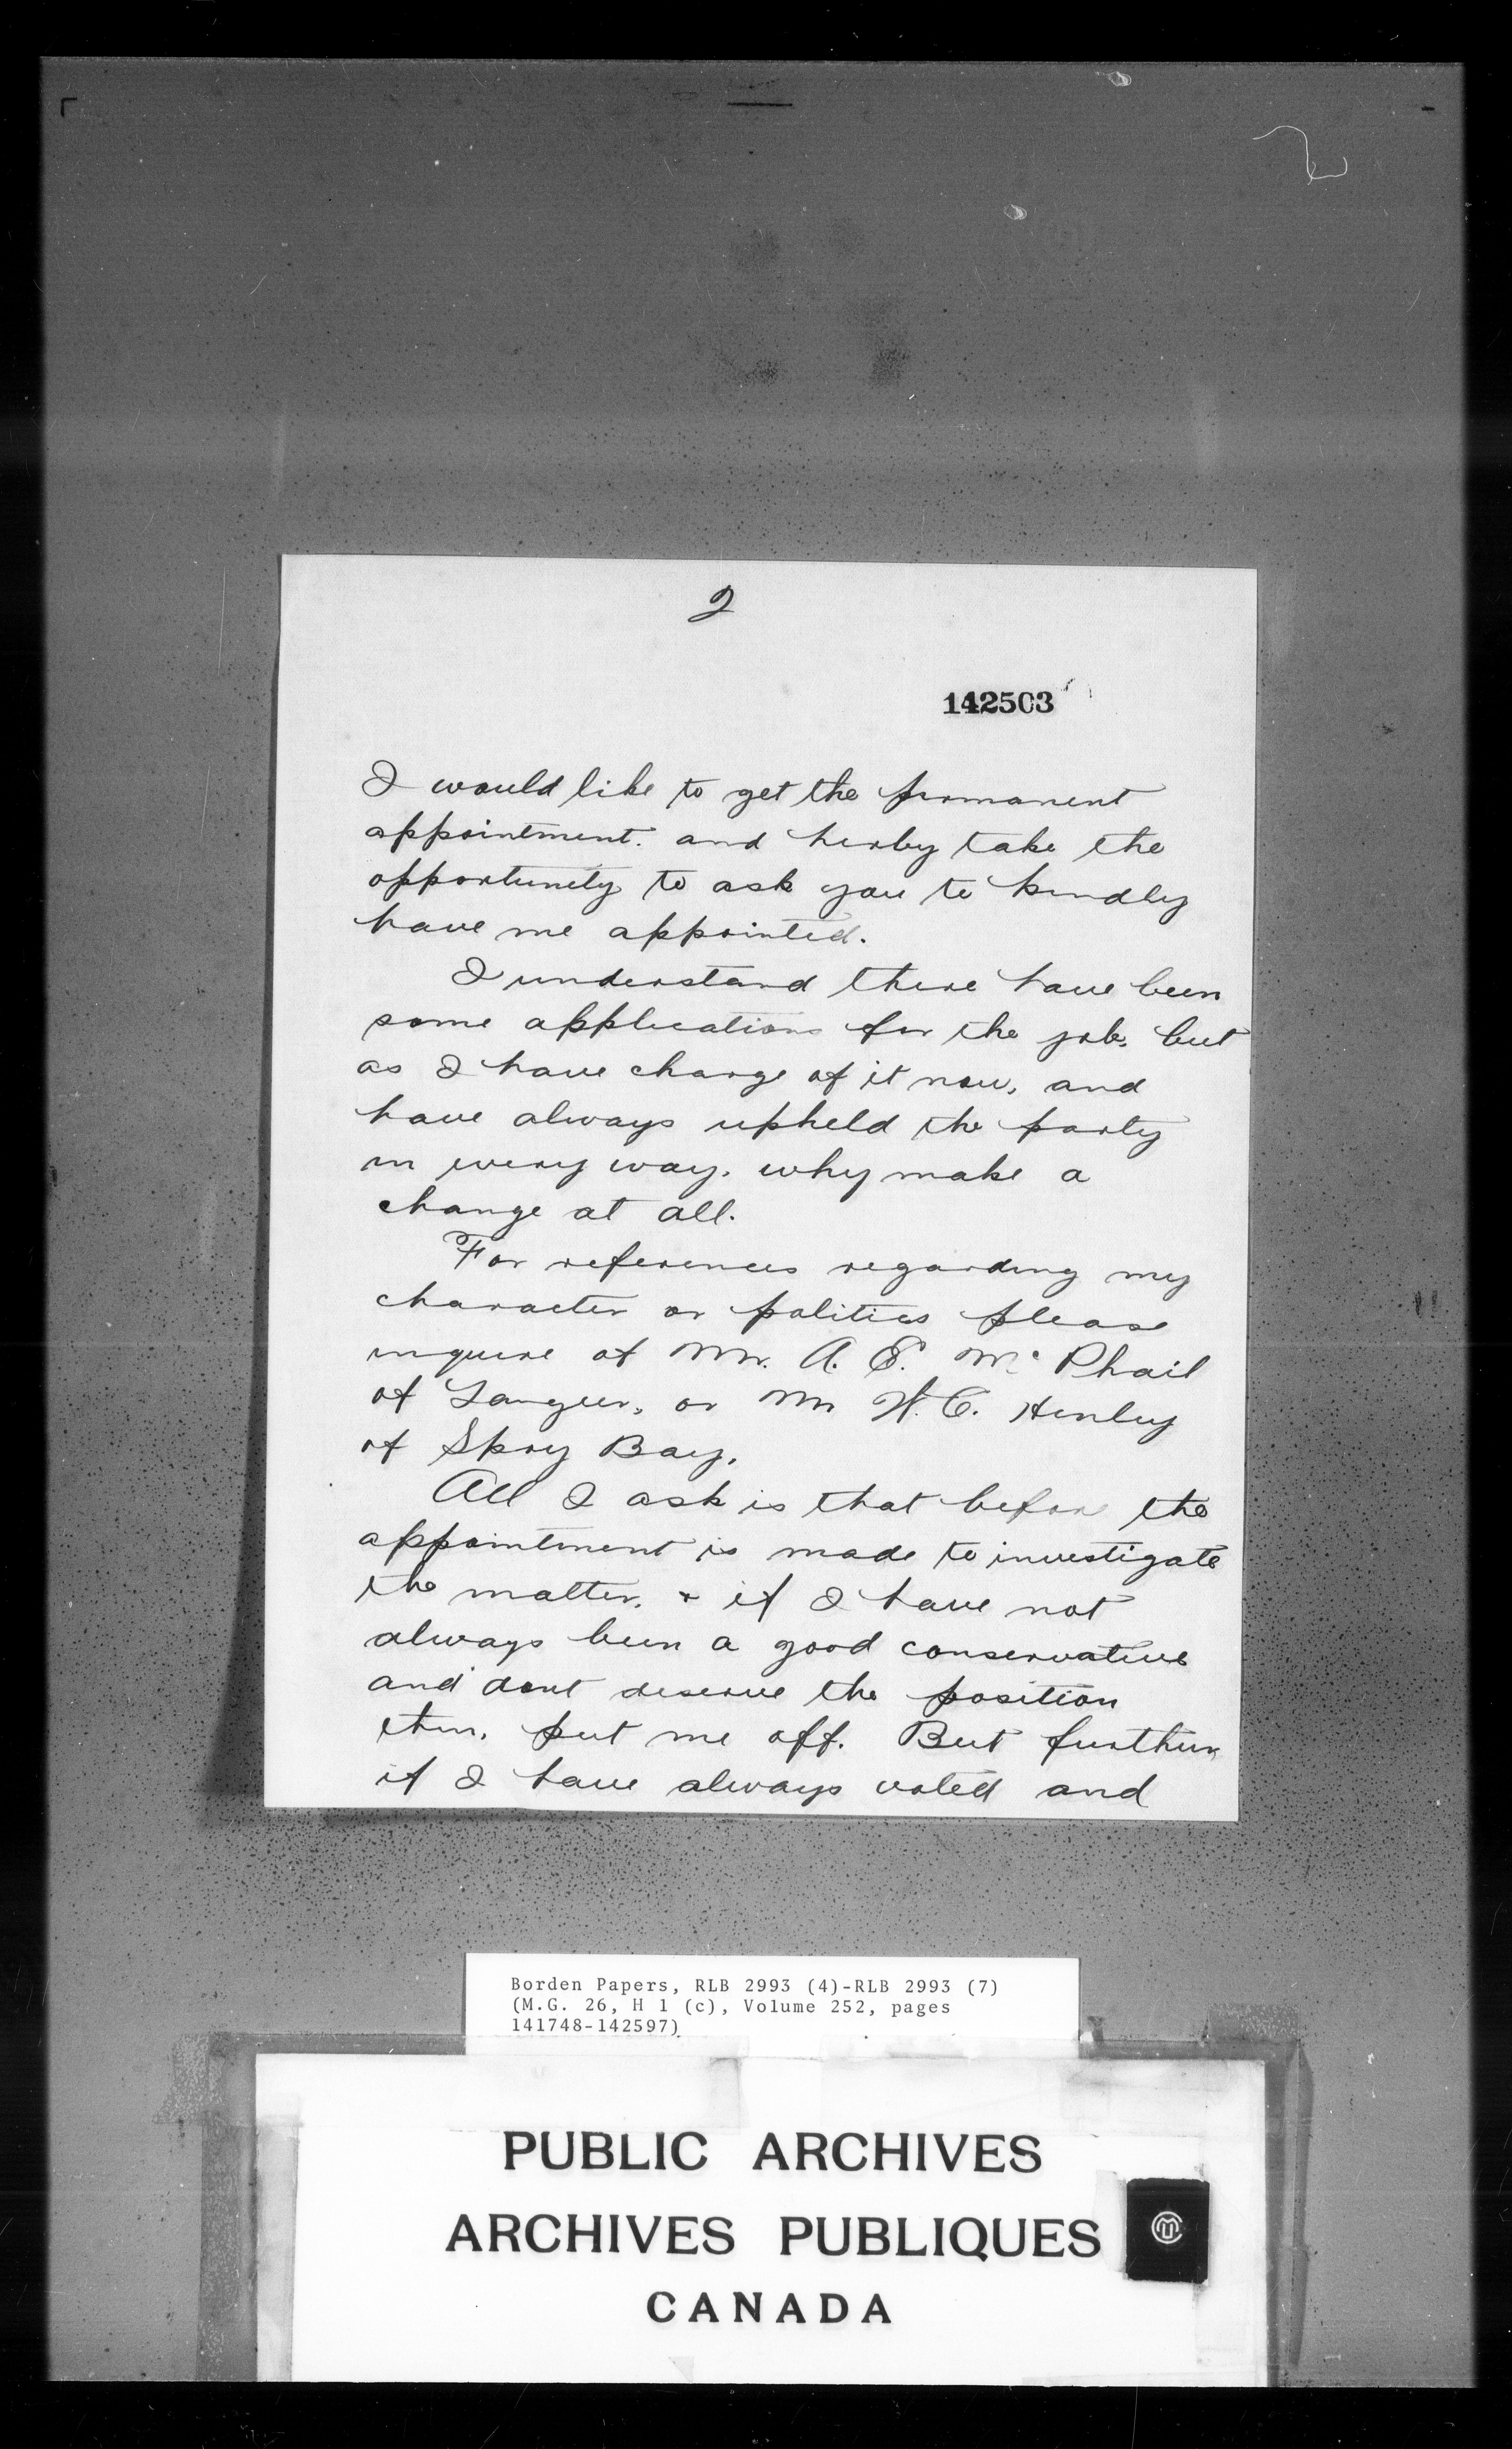 2
142503
I would like to get the promanent
appointment. and herby take the
opportunity to ask you to kindly
have me appointed.
I understand there have been
some applications for the job, but
as I have charge of it now, and
have always upheld the party
in every way. why make a
change at all.
For references regarding my
character or politics please
inquire of Mr. A. E. McPhail
of Tangier, or Mr W. C. Henley
of Spry Bay.
All I ask is that before the
appointment is made to investigate
the matter. + if I have not
always been a good conservative
and dont deserve the position
then, put me off. But further
if I have always voted and
Borden Papers, RLB 2993 (4)-RLB 2993 (7)
(M.G. 26, H 1 (c), Volume 252, pages
141748-142597)
PUBLIC ARCHIVES
ARCHIVES PUBLIQUES
CANADA